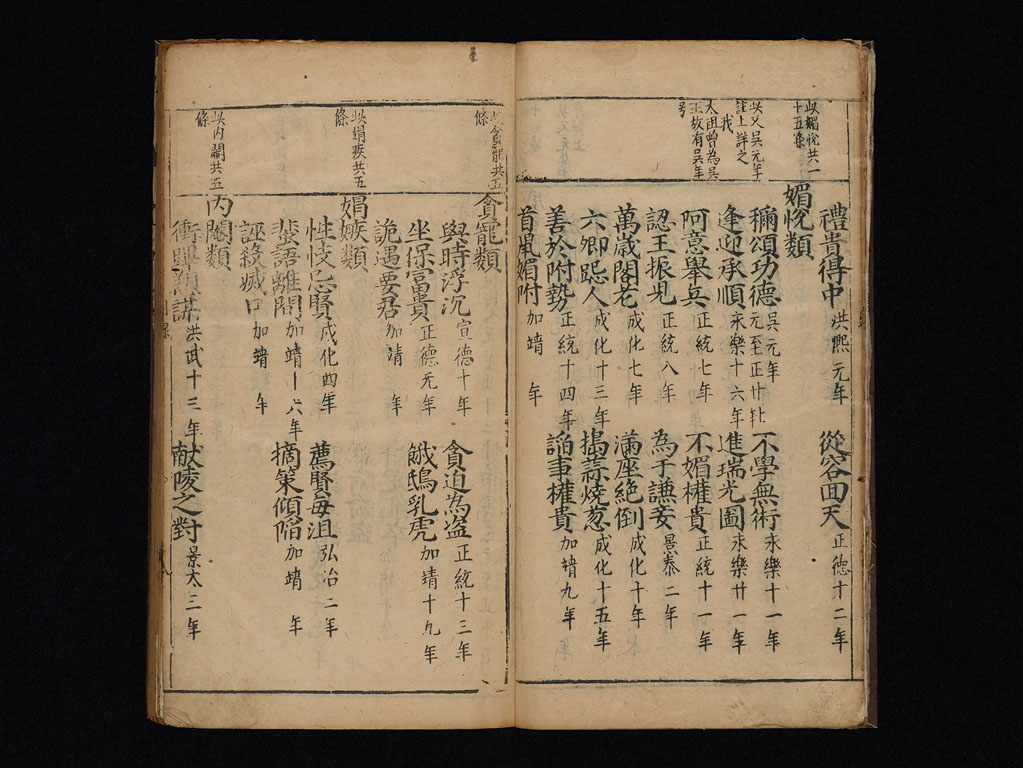 此媚悅共一
十五條
此乂吳元年
註上詳之
我
太祖曾為吳
王故有吳年
号
禮貴得中 洪熙元年 從容回天 正德十二年
媚悅類
稱頌功德 吳元年 元至正廿七年 不學無術 永樂十一年
逢迎承順 永樂十六年 進瑞光圖 永樂廿一年
阿意舉兵 正統七年 不媚權貴 正統十一年
認王振児 正統八年 為于謙妾 景泰二年
萬歲閣老 成化七年 滿座絕倒 成化十年
六卿跽人 成化十三年 搗蒜燒葱 成化十五年
善於附勢 正統十四年 謟事權貴 加靖九年
首戴媚附 加靖 年
此貪寵共五
條
此娟疾共五
條
此內閣共五
條
貪寵類
與時浮沉 宣德十年 貪迫為盗 正統十三年
坐保富貴 正德元年 餓鴟乳虎 加靖十九年
詭遇要君 加靖 年
娼嫉類
性忮忌賢 成化四年 薦賢每沮 弘治二年
蜚語離間 加靖十六年 摘策傾陷 加靖 年
誣殺滅口 加靖 年
內閣類
洪武十三年 献陵之對 景太三年
目錄